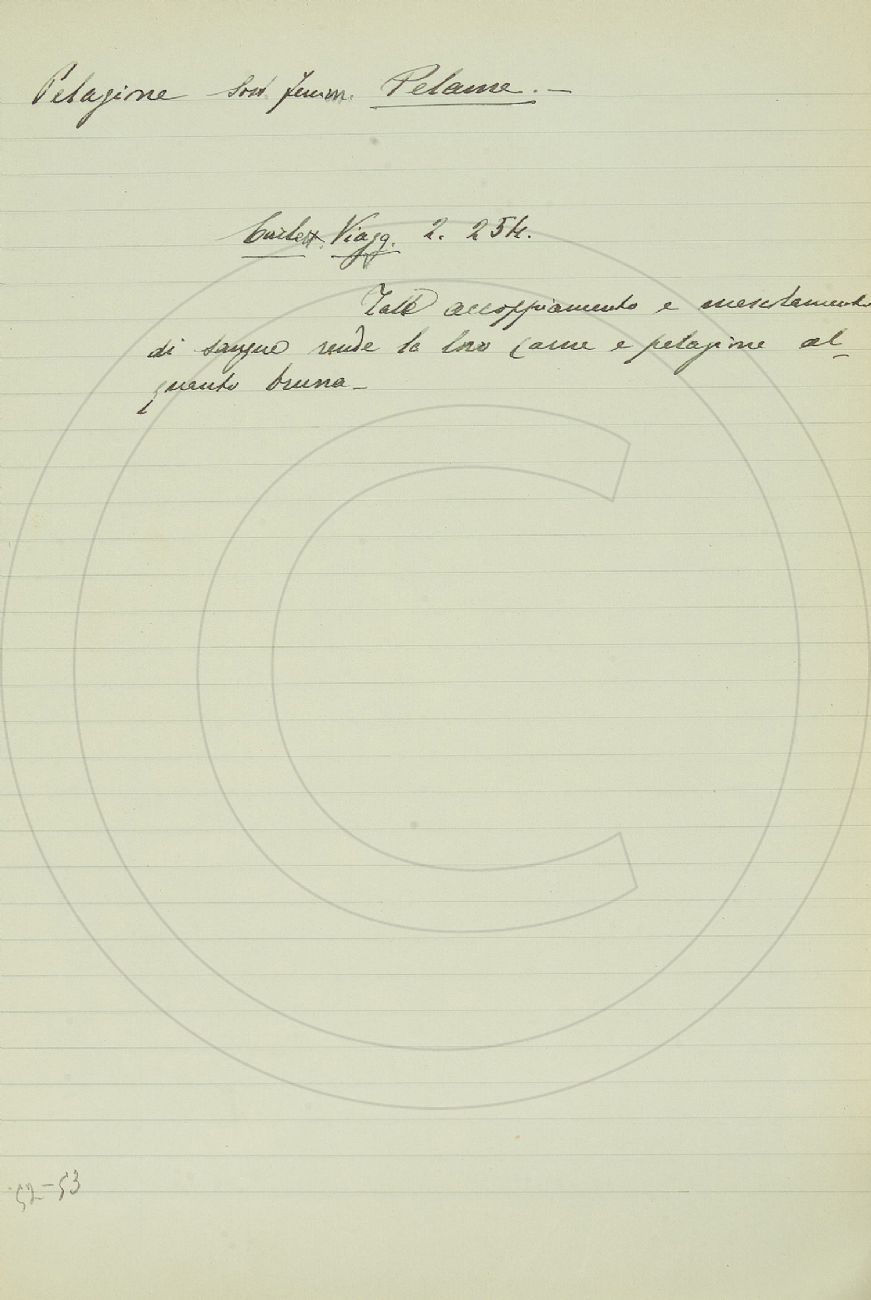 Pelagine Sost. femm. Pelame. —
Cartelett. Viagg. 2. 254.
Tale accoppiamento e mescolamento
di sangue rende la loro carne e pelagine al-
quanto bruna —
52-53